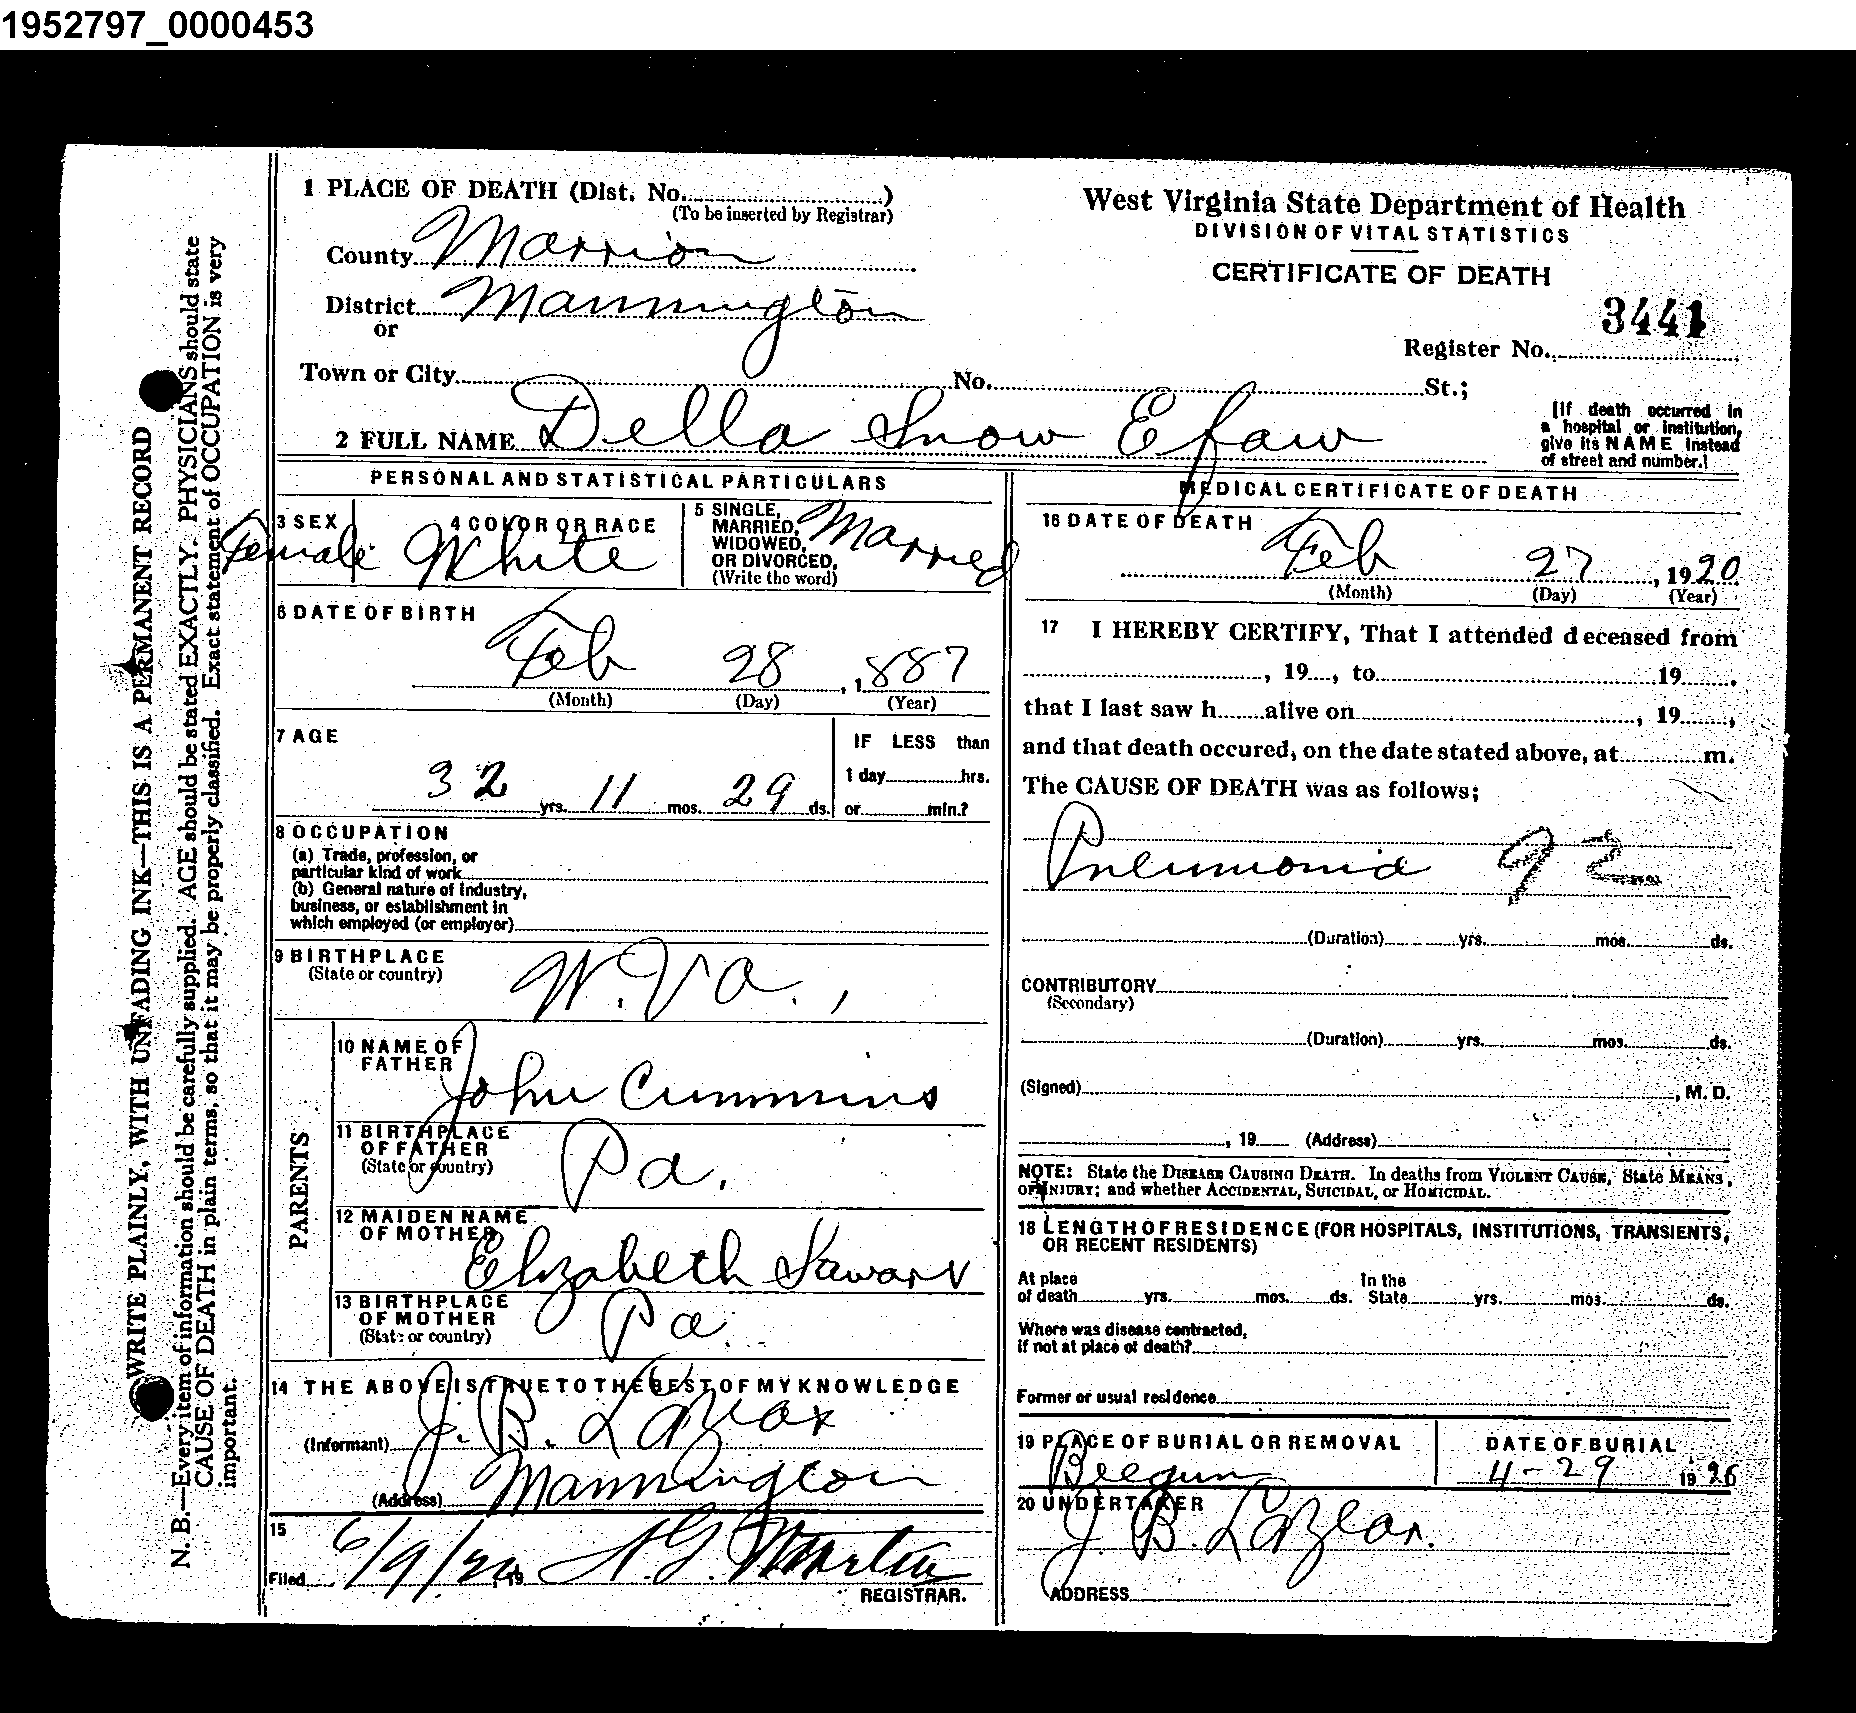 1952797_0000453
WRITE PLAINLY, WITH UNFADING INK—THIS IS A PERMANENT RECORD
N. B.—Every item of information should be carefully supplied. AGE should be stated EXACTLY. PHYSICIANS should state
CAUSE OF DEATH in plain terms, so that it may be properly classified. Exact statement of OCCUPATION is very
important.
1 PLACE OF DEATH (Dist. No. )
(To be inserted by Registrar)
County Marrion
District Mannington
or
Town or City No. St.;
West Virginia State Department of Health
DIVISION OF VITAL STATISTICS
CERTIFICATE OF DEATH
3441
Register No.
[If death occurred in
a hospital or institution,
give its NAME instead
of street and number.]
2 FULL NAME Della Snow Efaw
PERSONAL AND STATISTICAL PARTICULARS
3 SEX
Female
4 COLOR OR RACE
White
5 SINGLE,
MARRIED,
WIDOWED,
OR DIVORCED,
(Write the word)
Married
6 DATE OF BIRTH
Feb 28, 1887
(Month) (Day) (Year)
7 AGE
32 yrs. 11 mos. 29 ds.
IF LESS than
1 day hrs.
or min.?
8 OCCUPATION
(a) Trade, profession, or
particular kind of work
(b) General nature of industry,
business, or establishment in
which employed (or employer)
9 BIRTHPLACE
(State or country)
W. Va.,
PARENTS
10 NAME OF
FATHER
John Cummins
11 BIRTHPLACE
OF FATHER
(State or country)
Pa.
12 MAIDEN NAME
OF MOTHER
Elizabeth
13 BIRTHPLACE
OF MOTHER
(State or country)
Pa.
14 THE ABOVE IS TRUE TO THE BEST OF MY KNOWLEDGE
(Informant) J. B. Lazear
(Address) Mannington
15
Filed 6/9/20, 19 Martin
REGISTRAR.
MEDICAL CERTIFICATE OF DEATH
16 DATE OF DEATH
Feb 27, 1920
(Month) (Day) (Year)
17 I HEREBY CERTIFY, That I attended deceased from
, 19 , to 19 ,
that I last saw h alive on , 19 ,
and that death occured, on the date stated above, at m.
The CAUSE OF DEATH was as follows;
Pneumonia 92
(Duration) yrs. mos. ds.
CONTRIBUTORY
(Secondary)
(Duration) yrs. mos. ds.
(Signed) , M. D.
, 19 (Address)
NOTE: State the DISEASE CAUSING DEATH. In deaths from VIOLENT CAUSE, State MEANS
OF INJURY; and whether ACCIDENTAL, SUICIDAL, or HOMICIDAL.
18 LENGTH OF RESIDENCE (FOR HOSPITALS, INSTITUTIONS, TRANSIENTS,
OR RECENT RESIDENTS)
At place In the
of death yrs. mos. ds. State yrs. mos. ds.
Where was disease contracted,
if not at place of death?
Former or usual residence
19 PLACE OF BURIAL OR REMOVAL
DATE OF BURIAL
4-29 19
20 UNDERTAKER
J. B. Lazear.
ADDRESS